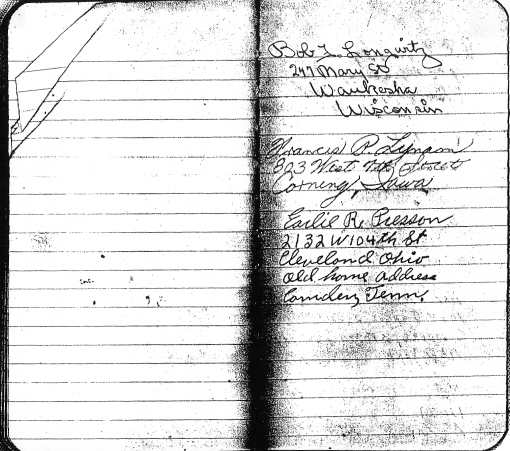 Bob L. Longwitz
247 Mary St
Waukesha
Wisconsin
Francis P. Lynam
823 West 7th Street
Corning, Iowa
Earlie R. Presson
2132 W 104th St
Cleveland Ohio
Old home address
Camden, Tenn.